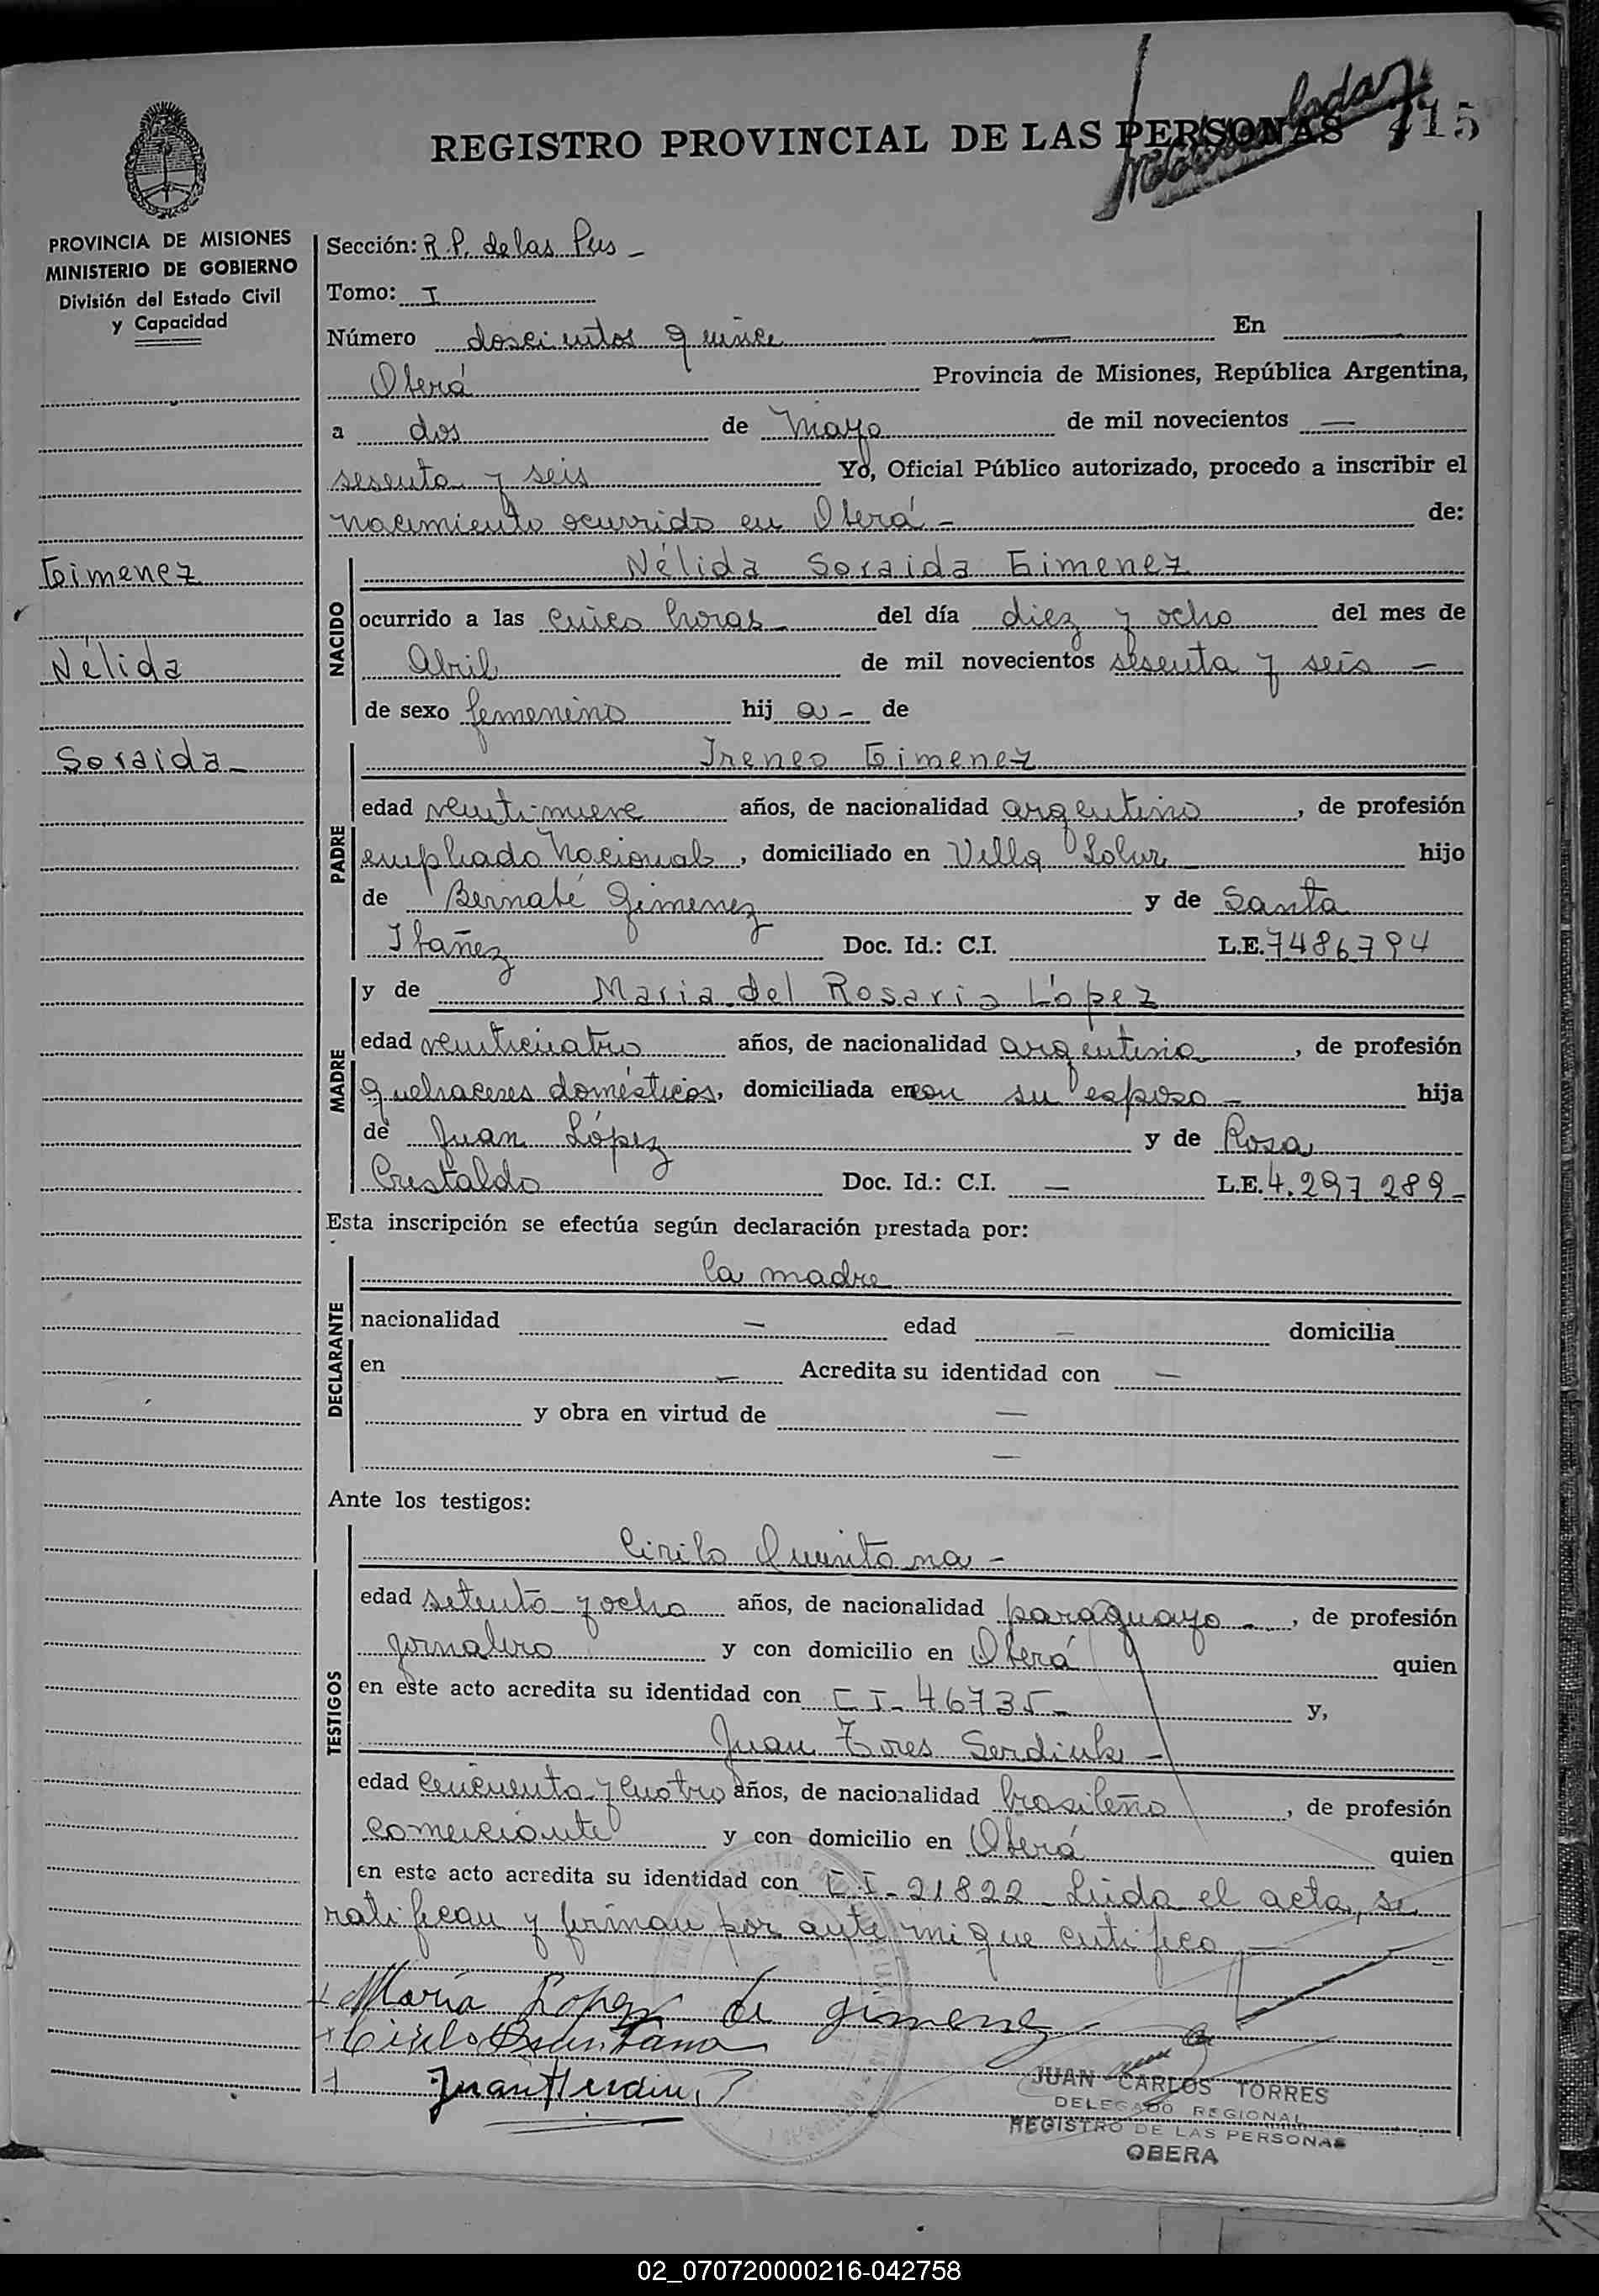 REGISTRO PROVINCIAL DE LAS PERSONAS
PROVINCIA DE MISIONES
MINISTERIO DE GOBIERNO
División del Estado Civil
y Capacidad
Gimenez
Nélida
Soraida
Sección: R.P. de las Pers
Tomo: I
Número doscientos quince — En —
Oberá Provincia de Misiones, República Argentina,
a dos de Mayo de mil novecientos —
sesenta y seis Yo, Oficial Público autorizado, procedo a inscribir el
nacimiento ocurrido en Oberá - de:
NACIDO
Nélida Soraida Gimenez
ocurrido a las cinco horas - del día diez y ocho del mes de
Abril de mil novecientos sesenta y seis —
de sexo femenino hij a - de
PADRE
Ireneo Gimenez
edad veintinueve años, de nacionalidad argentino, de profesión
empleado Nacional, domiciliado en Villa hijo
de Bernabé Gimenez y de Santa
Ibañez Doc. Id.: C.I. L.E. 7486794
MADRE
y de Maria del Rosario López
edad veinticuatro años, de nacionalidad argentina, de profesión
quehaceres domésticos, domiciliada en con su esposo - hija
de Juan López y de Rosa
Cristaldo Doc. Id.: C.I. — L.E. 4.297 289 -
Esta inscripción se efectúa según declaración prestada por:
DECLARANTE
la madre
nacionalidad — edad — domicilia
en — Acredita su identidad con —
y obra en virtud de —
—
Ante los testigos:
TESTIGOS
Cirilo Quintana -
edad setenta y ocho años, de nacionalidad paraguayo -, de profesión
jornalero y con domicilio en Oberá quien
en este acto acredita su identidad con C I - 46735 - y,
Juan Serdiuk -
edad cincuenta y cuatro años, de nacionalidad brasileño, de profesión
comerciante y con domicilio en Oberá quien
en este acto acredita su identidad con C I - 21822 - Leída el acta, se
ratifican y firman por ante mi que certifico -
María Lopez de gimenez
Cirilo Quintana
Juan
JUAN CARLOS TORRES
DELEGADO REGIONAL
REGISTRO DE LAS PERSONAS
OBERA
02_070720000216-042758